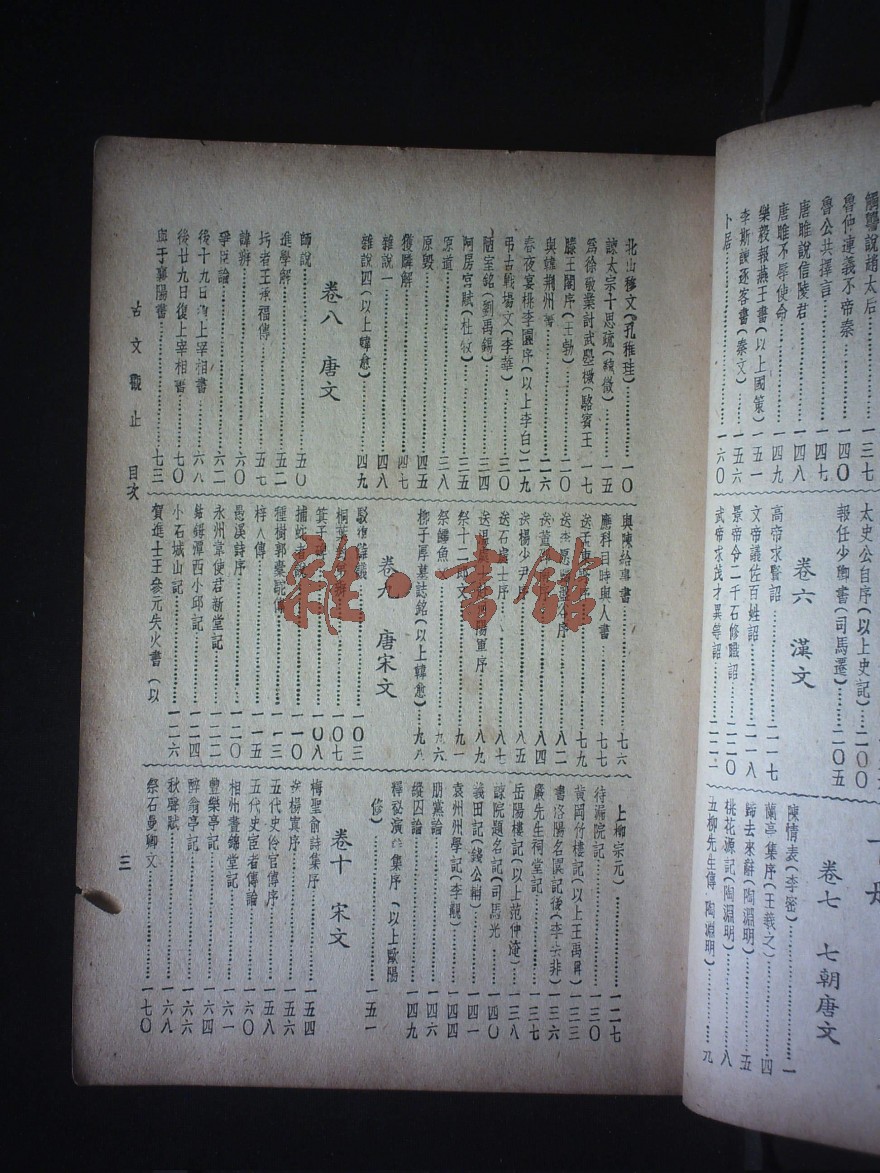 觸讋說趙太后
魯仲連義不帝秦……一四〇
魯公共擇言……一四七
唐雎說信陵君……一四八
唐雎不辱使命……一四九
樂毅報燕王書(以上國策)……一五一
李斯諫逐客書(秦文)……一五六
卜居……一六〇
太史公自序(以上史記)……二〇〇
報任少卿書(司馬遷)……二〇五
卷六 漢文
高帝求賢詔……二一七
文帝議佐百姓詔……二一八
景帝令二千石修職詔……二二〇
武帝求茂才異等詔……二二一
卷七 七朝唐文
陳情表(李密)……一
蘭亭集序(王羲之)……四
歸去來辭(陶淵明)……五
桃花源記(陶淵明)……八
五柳先生傳(陶淵明)……九
北山移文(孔稚珪)……一〇
諫太宗十思疏(魏徵)……一五
爲徐敬業討武曌檄(駱賓王……一七
滕王閣序(王勃)……二〇
與韓荊州書……二六
春夜宴桃李園序(以上李白)二九
弔古戰場文(李華)……三〇
陋室銘(劉禹錫)……三四
阿房宮賦(杜牧)……三五
原道……三八
原毀……四五
獲麟解……四七
雜說一……四八
雜說四(以上韓愈)……四九
卷八 唐文
師說……五〇
進學解……五二
圬者王承福傳……五七
諱辯……六〇
爭臣論……六二
後十九日復上宰相書……六八
後廿九日復上宰相書……七〇
與于襄陽書……七三
與陳給事書……七六
應科目時與人書……七七
送孟東野序……七九
送李愿歸盤谷序……八二
送董邵南序……八四
送楊少尹序……八五
送石處士序……八七
送溫處士赴河陽軍序……八九
祭十二郎文……九一
祭鱷魚文……九六
柳子厚墓誌銘(以上韓愈)…九八
卷九 唐宋文
駁復讎議……一〇三
桐葉封弟辨……一〇七
箕子碑……一〇八
捕蛇者說……一一〇
種樹郭橐駝傳……一一三
梓人傳……一一五
愚溪詩序……一二〇
永州韋使君新堂記……一二二
鈷鉧潭西小邱記……一二四
小石城山記……一二六
賀進士王參元失火書(以
上柳宗元)……一二七
待漏院記……一三〇
黃岡竹樓記(以上王禹偁)一三三
書洛陽名園記後(李去非)一三六
嚴先生祠堂記……一三七
岳陽樓記(以上范仲淹)…一三八
諫院題名記(司馬光……一四〇
義田記(錢公輔)……一四一
袁州州學記(李覯)……一四四
朋黨論……一四六
縱囚論……一四九
釋祕演詩集序(以上歐陽
修)……一五一
卷十 宋文
梅聖俞詩集序……一五四
送楊寘序……一五六
五代史伶官傳序……一五八
五代史宦者傳論……一六〇
相州晝錦堂記……一六一
豐樂亭記……一六四
醉翁亭記……一六六
秋聲賦……一六八
祭石曼卿文……一七〇
古文觀止 目次
三
雜·書館